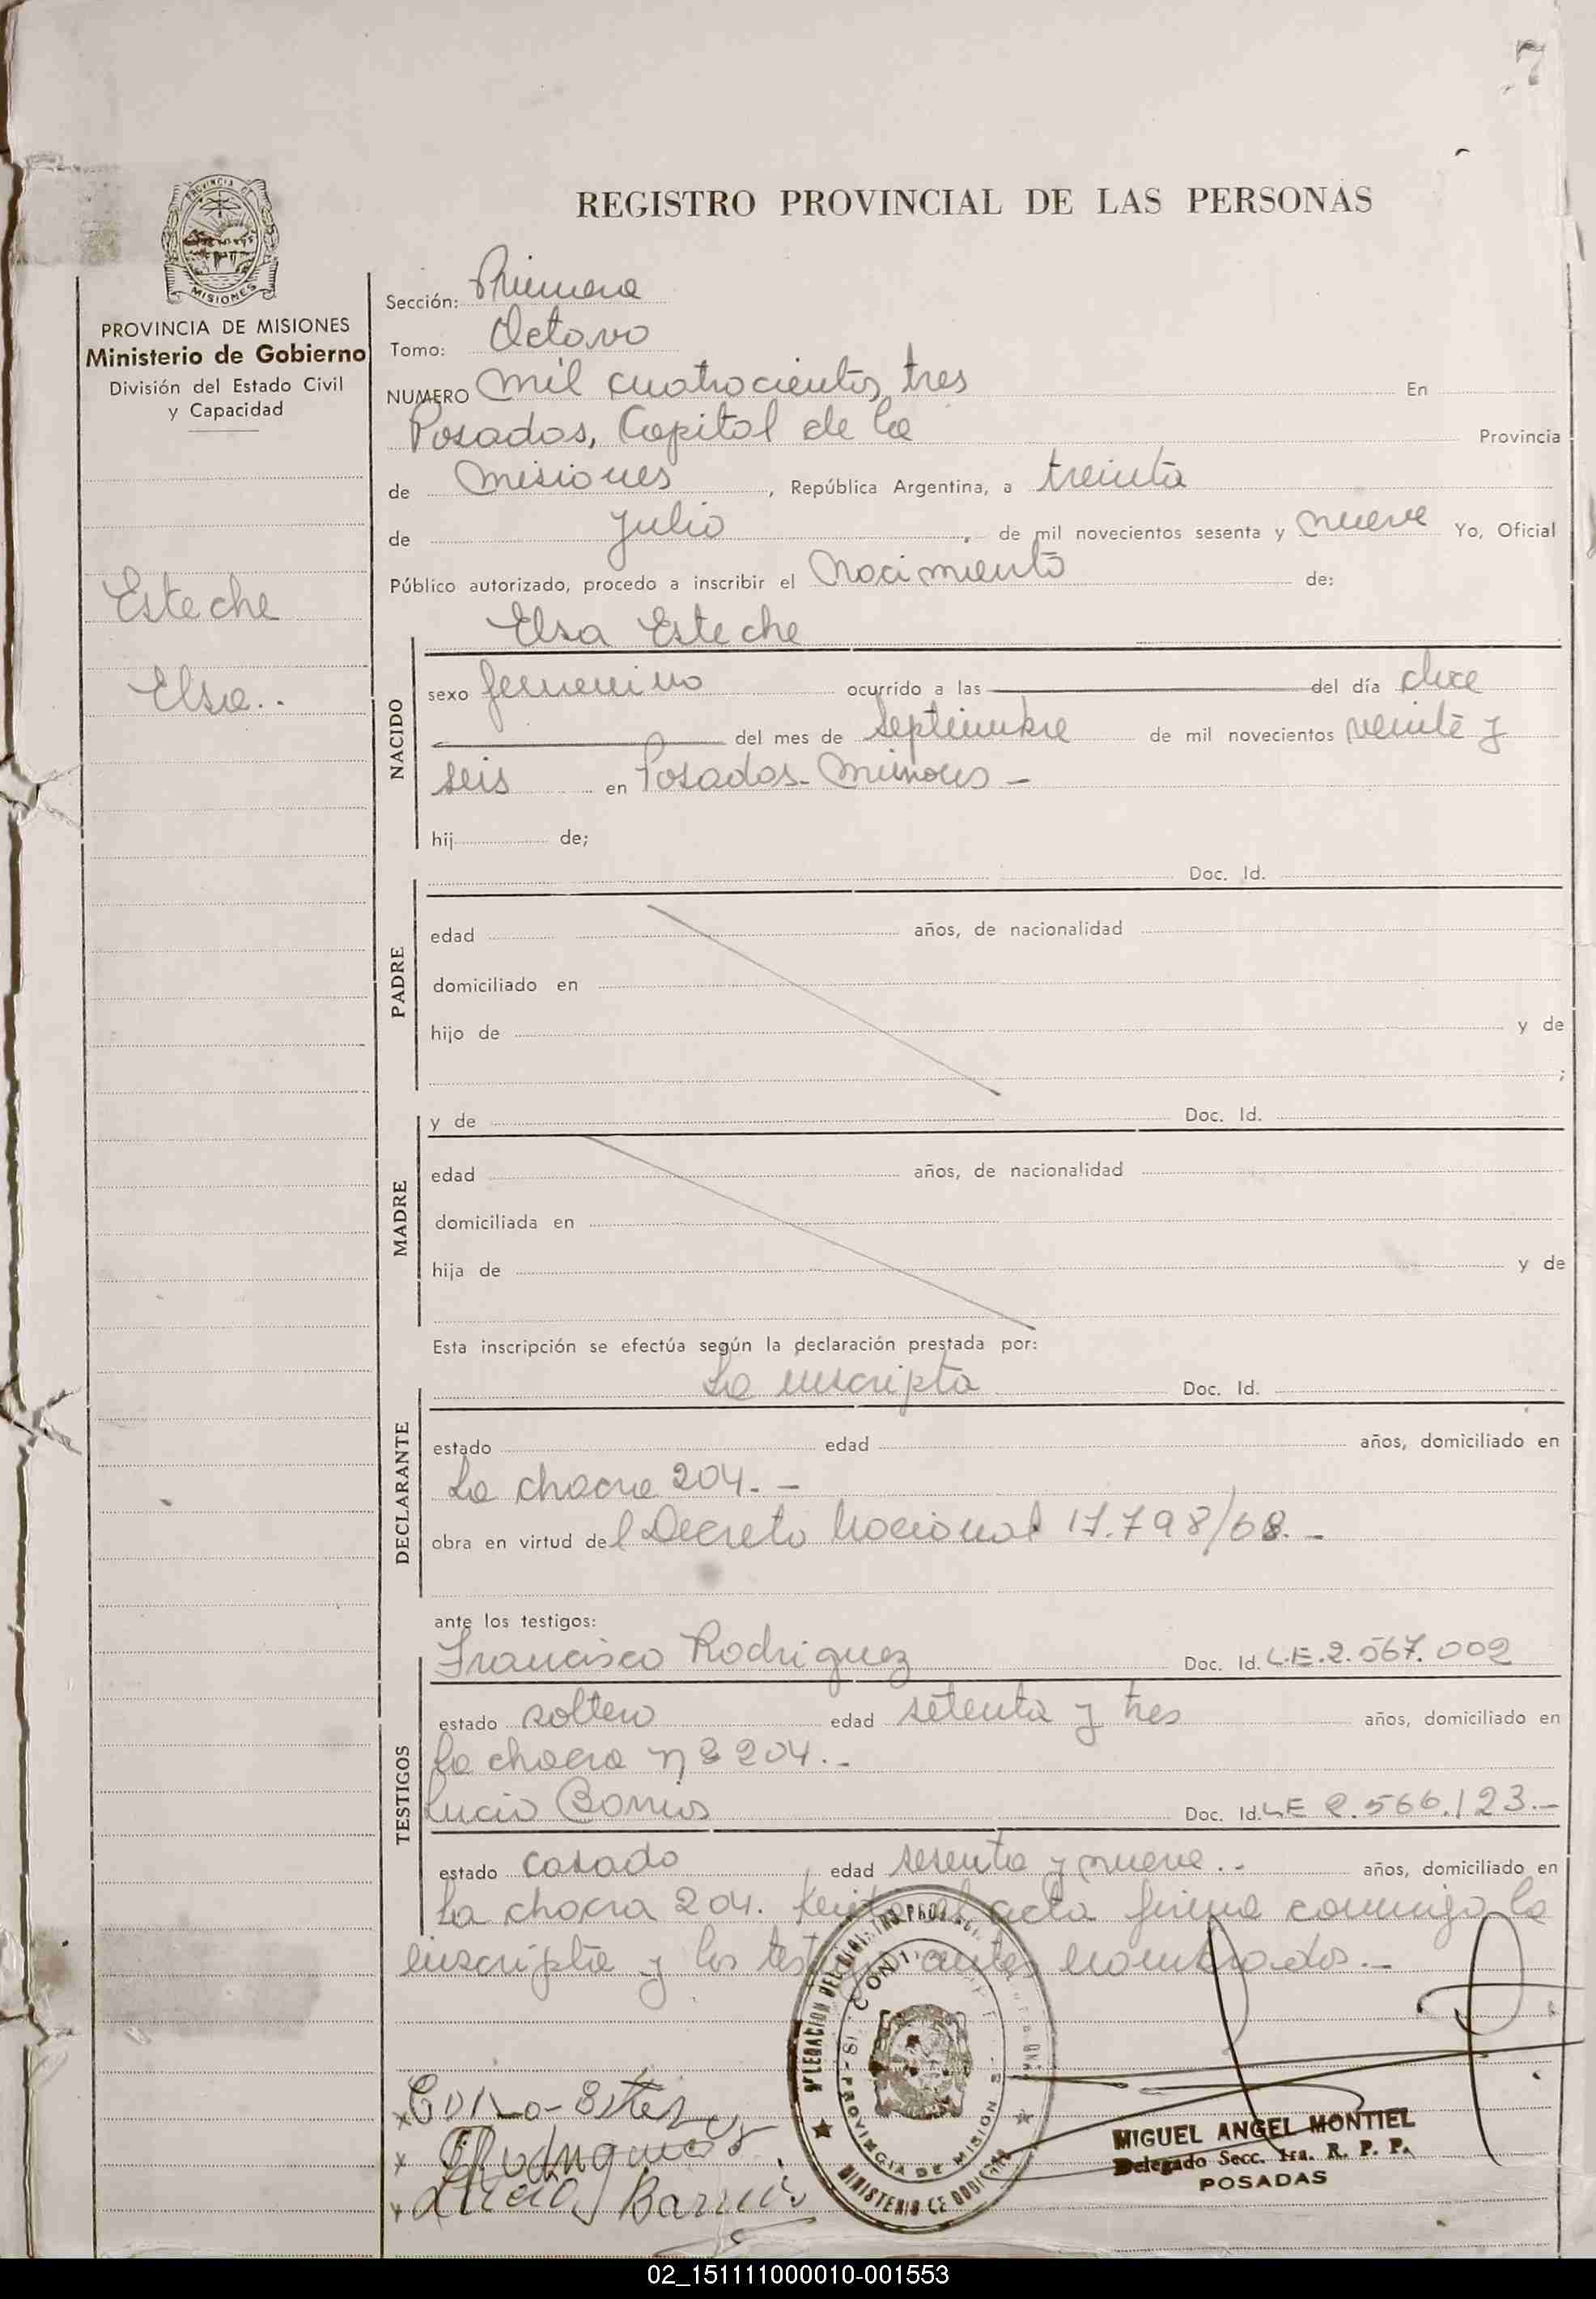 7
REGISTRO PROVINCIAL DE LAS PERSONAS
PROVINCIA DE MISIONES
MISIONES
PROVINCIA DE MISIONES
Ministerio de Gobierno
División del Estado Civil
y Capacidad
Esteche
Elsa..
Sección: Primera
Tomo: Octavo
NUMERO Mil cuatrocientos tres En
Posadas, Capital de la Provincia
de Misiones, República Argentina, a treinta
de Julio, de mil novecientos sesenta y nueve Yo, Oficial
Público autorizado, procedo a inscribir el Nacimiento de:
Elsa Esteche
NACIDO
sexo femenino ocurrido a las del día doce
del mes de Septiembre de mil novecientos veinte y
seis en Posadas-Misiones -
hij de;
Doc. Id.
PADRE
edad años, de nacionalidad
domiciliado en
hijo de y de
;
y de Doc. Id.
MADRE
edad años, de nacionalidad
domiciliada en
hija de y de
Esta inscripción se efectúa según la declaración prestada por:
La inscripta Doc. Id.
DECLARANTE
estado edad años, domiciliado en
La chacra 204.-
obra en virtud del Decreto Nacional 17.798/68.-
ante los testigos:
Francisco Rodriguez Doc. Id. L.E.2.567.002
TESTIGOS
estado soltero edad setenta y tres años, domiciliado en
la chacra nº 204.-
Lucio Barrios Doc. Id. LE 2.566.123.-
estado casado edad sesenta y nueve.. años, domiciliado en
La chacra 204. el acta firma conmigo la
inscripta y los testigos antes nombrados.-
PROVINCIA DE MISIONES
MINISTERIO DE GOBIERNO
Lucio Barrios
MIGUEL ANGEL MONTIEL
Delegado Secc. 1ra. R. P. P.
POSADAS
02_151111000010-001553